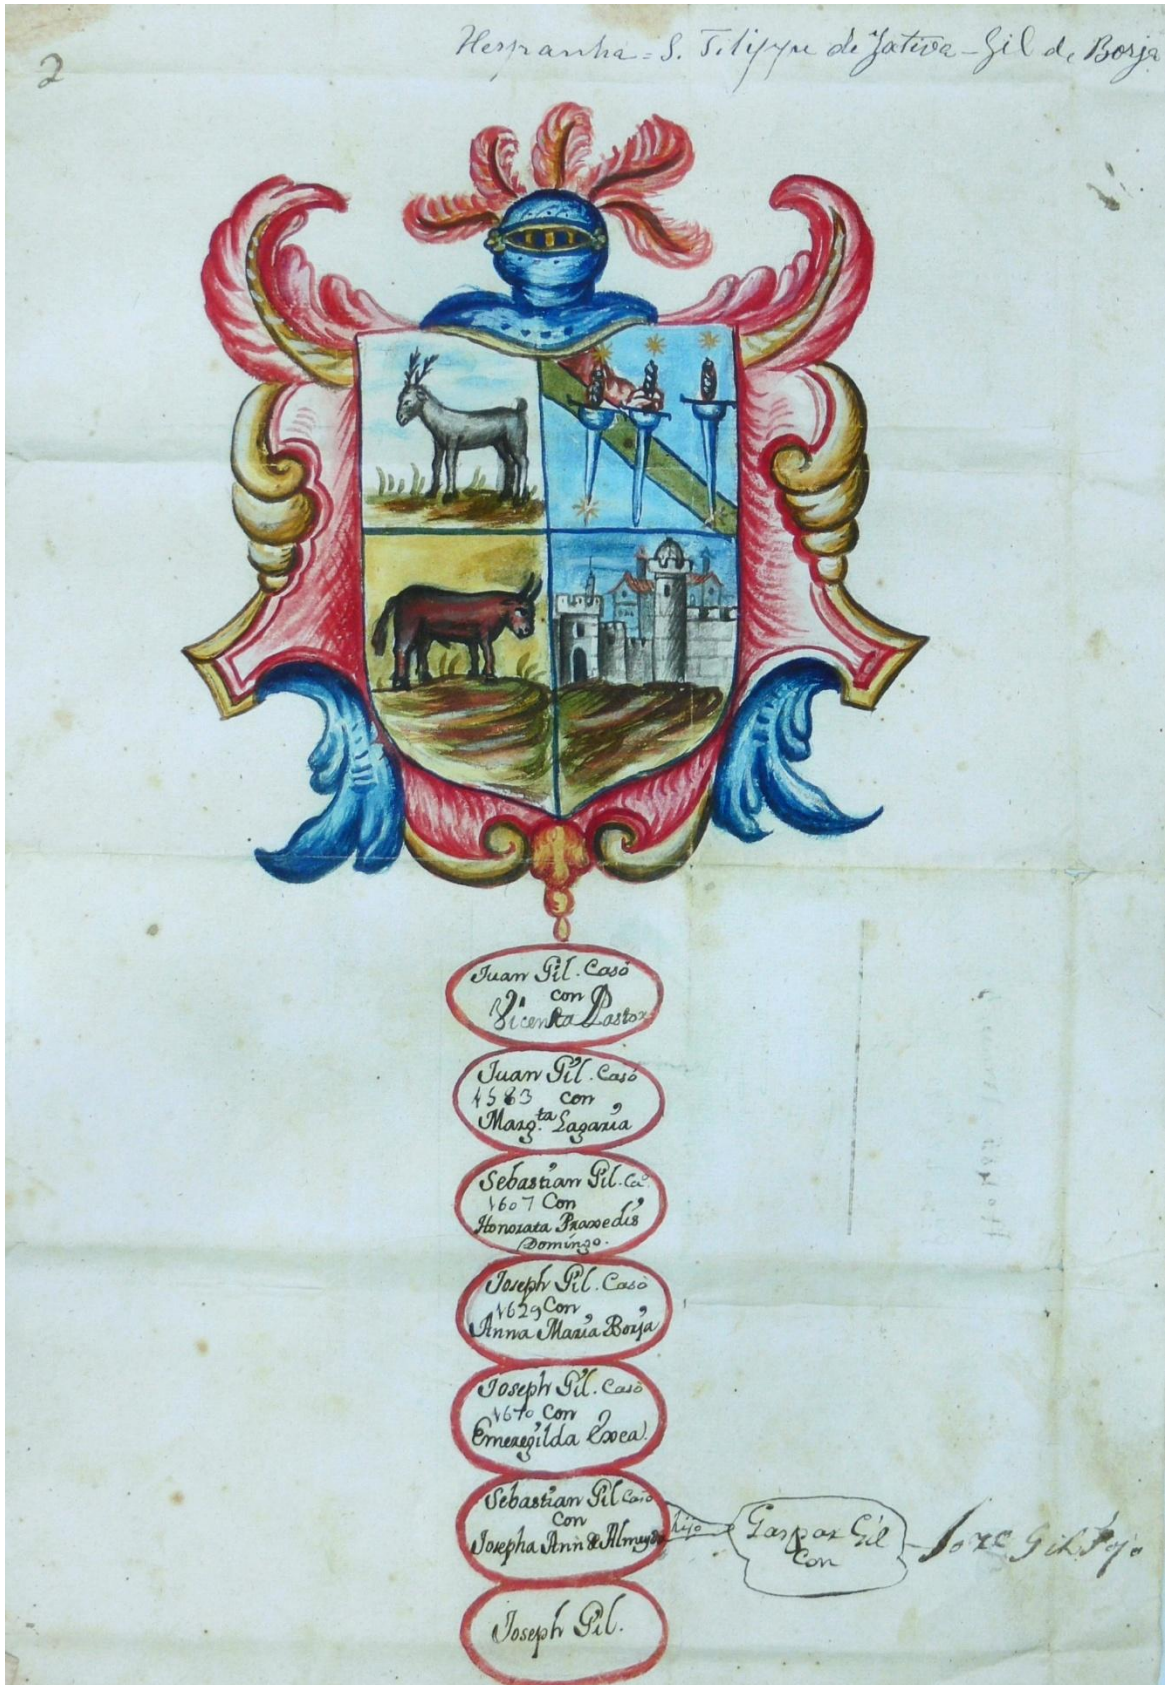 2
Hespanha = S. Filippe de Jativa - Gil de Borja
Juan Gil. Casó
con
Vicenta Pastor
Juan Gil. Casó
1583 con
Marg.ta Lagaria
Sebastian Gil. Ca.
1607 Con
Honorata Praxedis
Domingo.
Joseph Gil. Casò
1629 Con
Anna Maria Borja
Joseph Gil. Casò
1670 Con
Emeregilda Exea.
Sebastian Gil Casò
Con
Josepha Ann de Almeyda
hijo
Gaspar Gil
Con
Joze Gil
Joseph Gil.